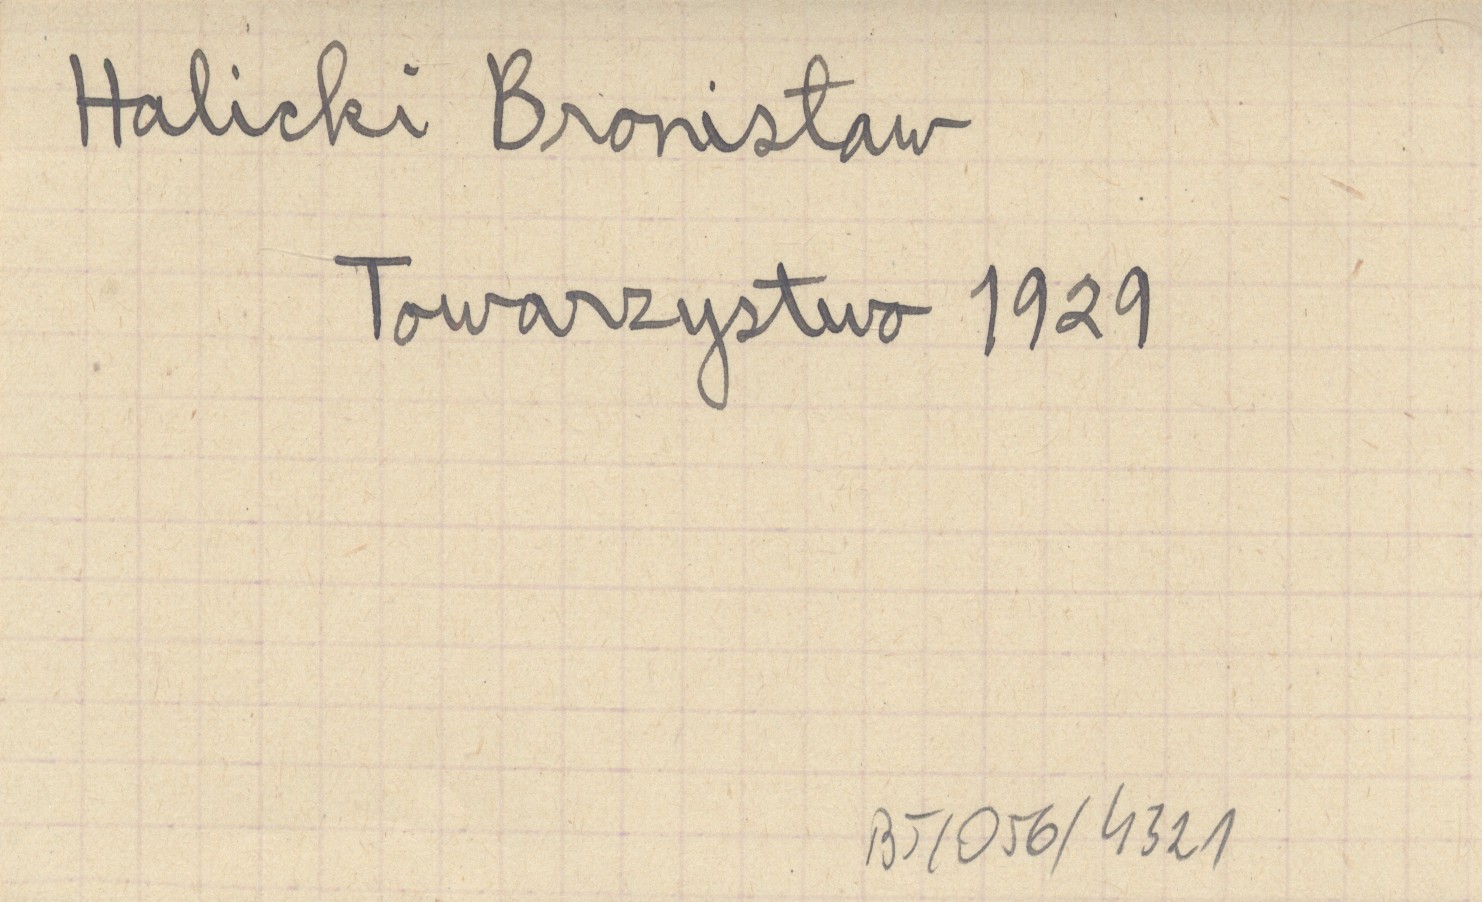 Halicki Bronisław
Towarzystwo 1929
BJ/056/4321